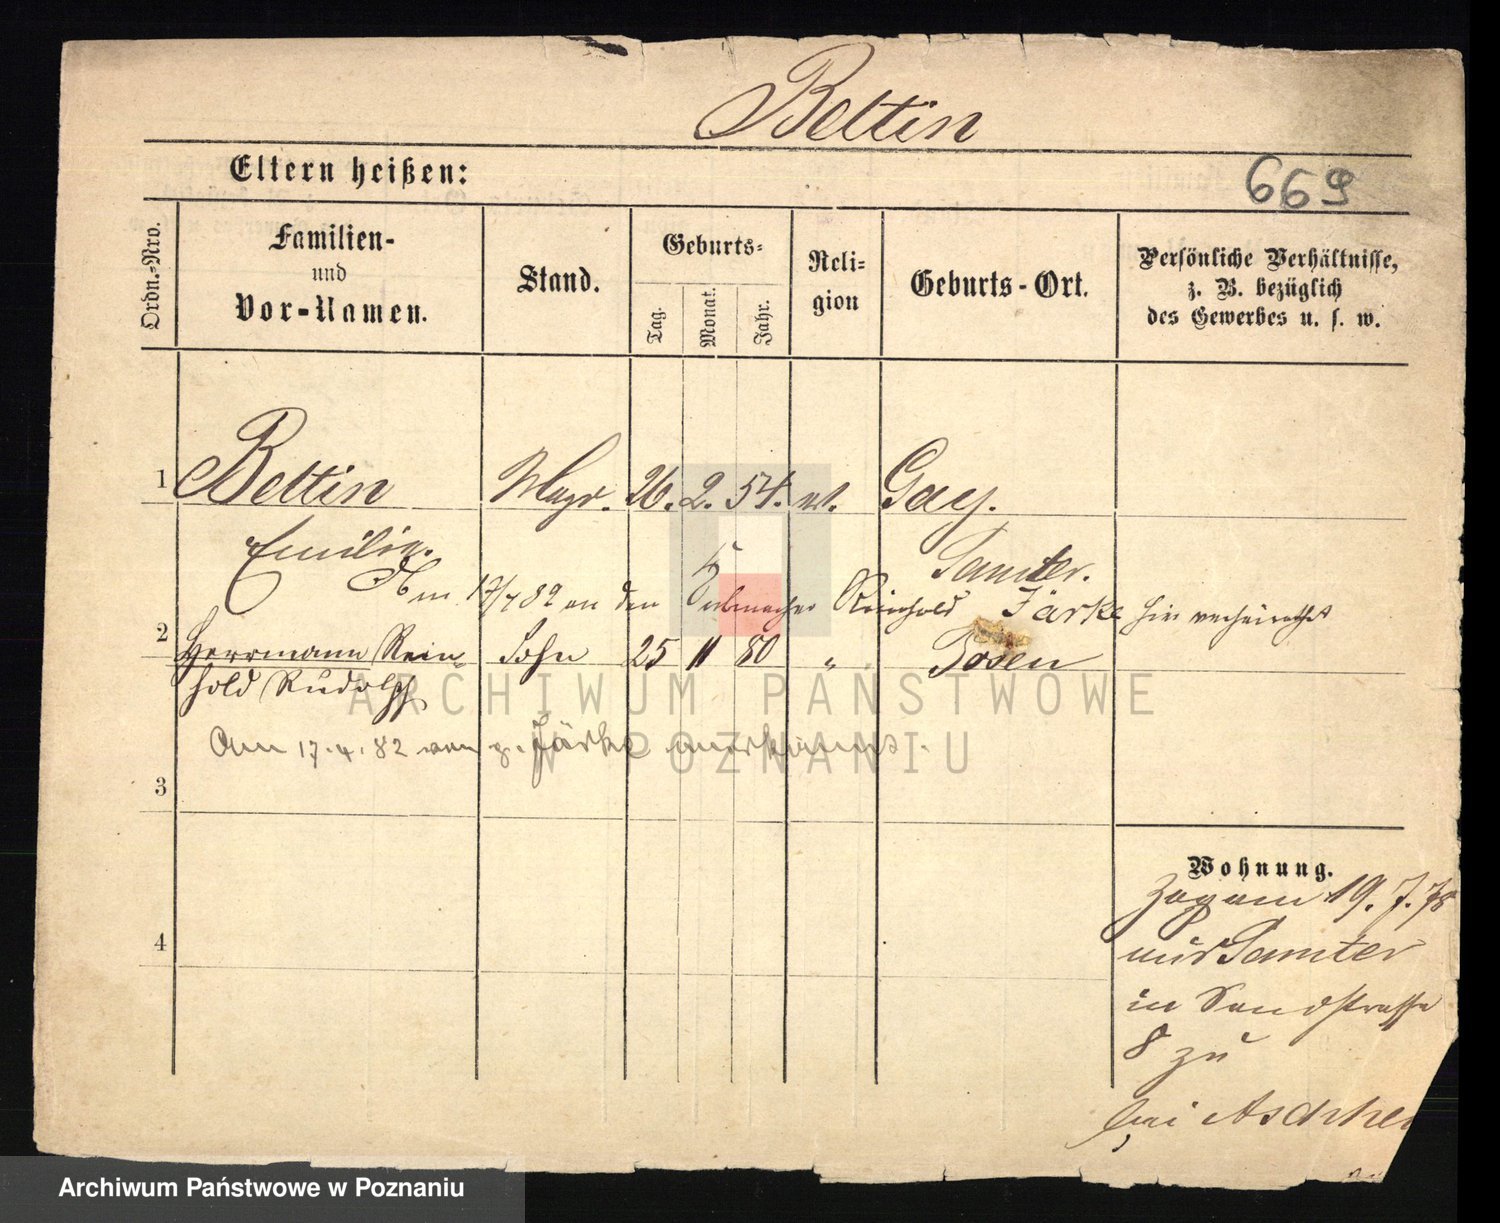 Bettin
669
Eltern heißen:
Ordn.-Nro.
Familien-
und
Vor-Namen.
Stand.
Geburts-
Tag.
Monat.
Jahr.
Reli-
gion
Geburts-Ort.
Persönliche Verhältnisse,
z. B. bezüglich
des Gewerbes u. s. w.
1 Bettin Magd. 26. 2. 54. ev. Gay.
Emilie. Samter.
Am 17/7 82 an den Reinhold Järke hier verheirathet
2 Herrmann Rein- Sohn 25 11 80 " Posen
hold Rudolph
Am 17.4.82 von p. Järke anerkannt.
3
4
Wohnung.
Zog am 19. 7. 78
aus Samter
in Sandstrasse
8 zu
bei
ARCHIWUM PAŃSTWOWE
W POZNANIU
Archiwum Państwowe w Poznaniu